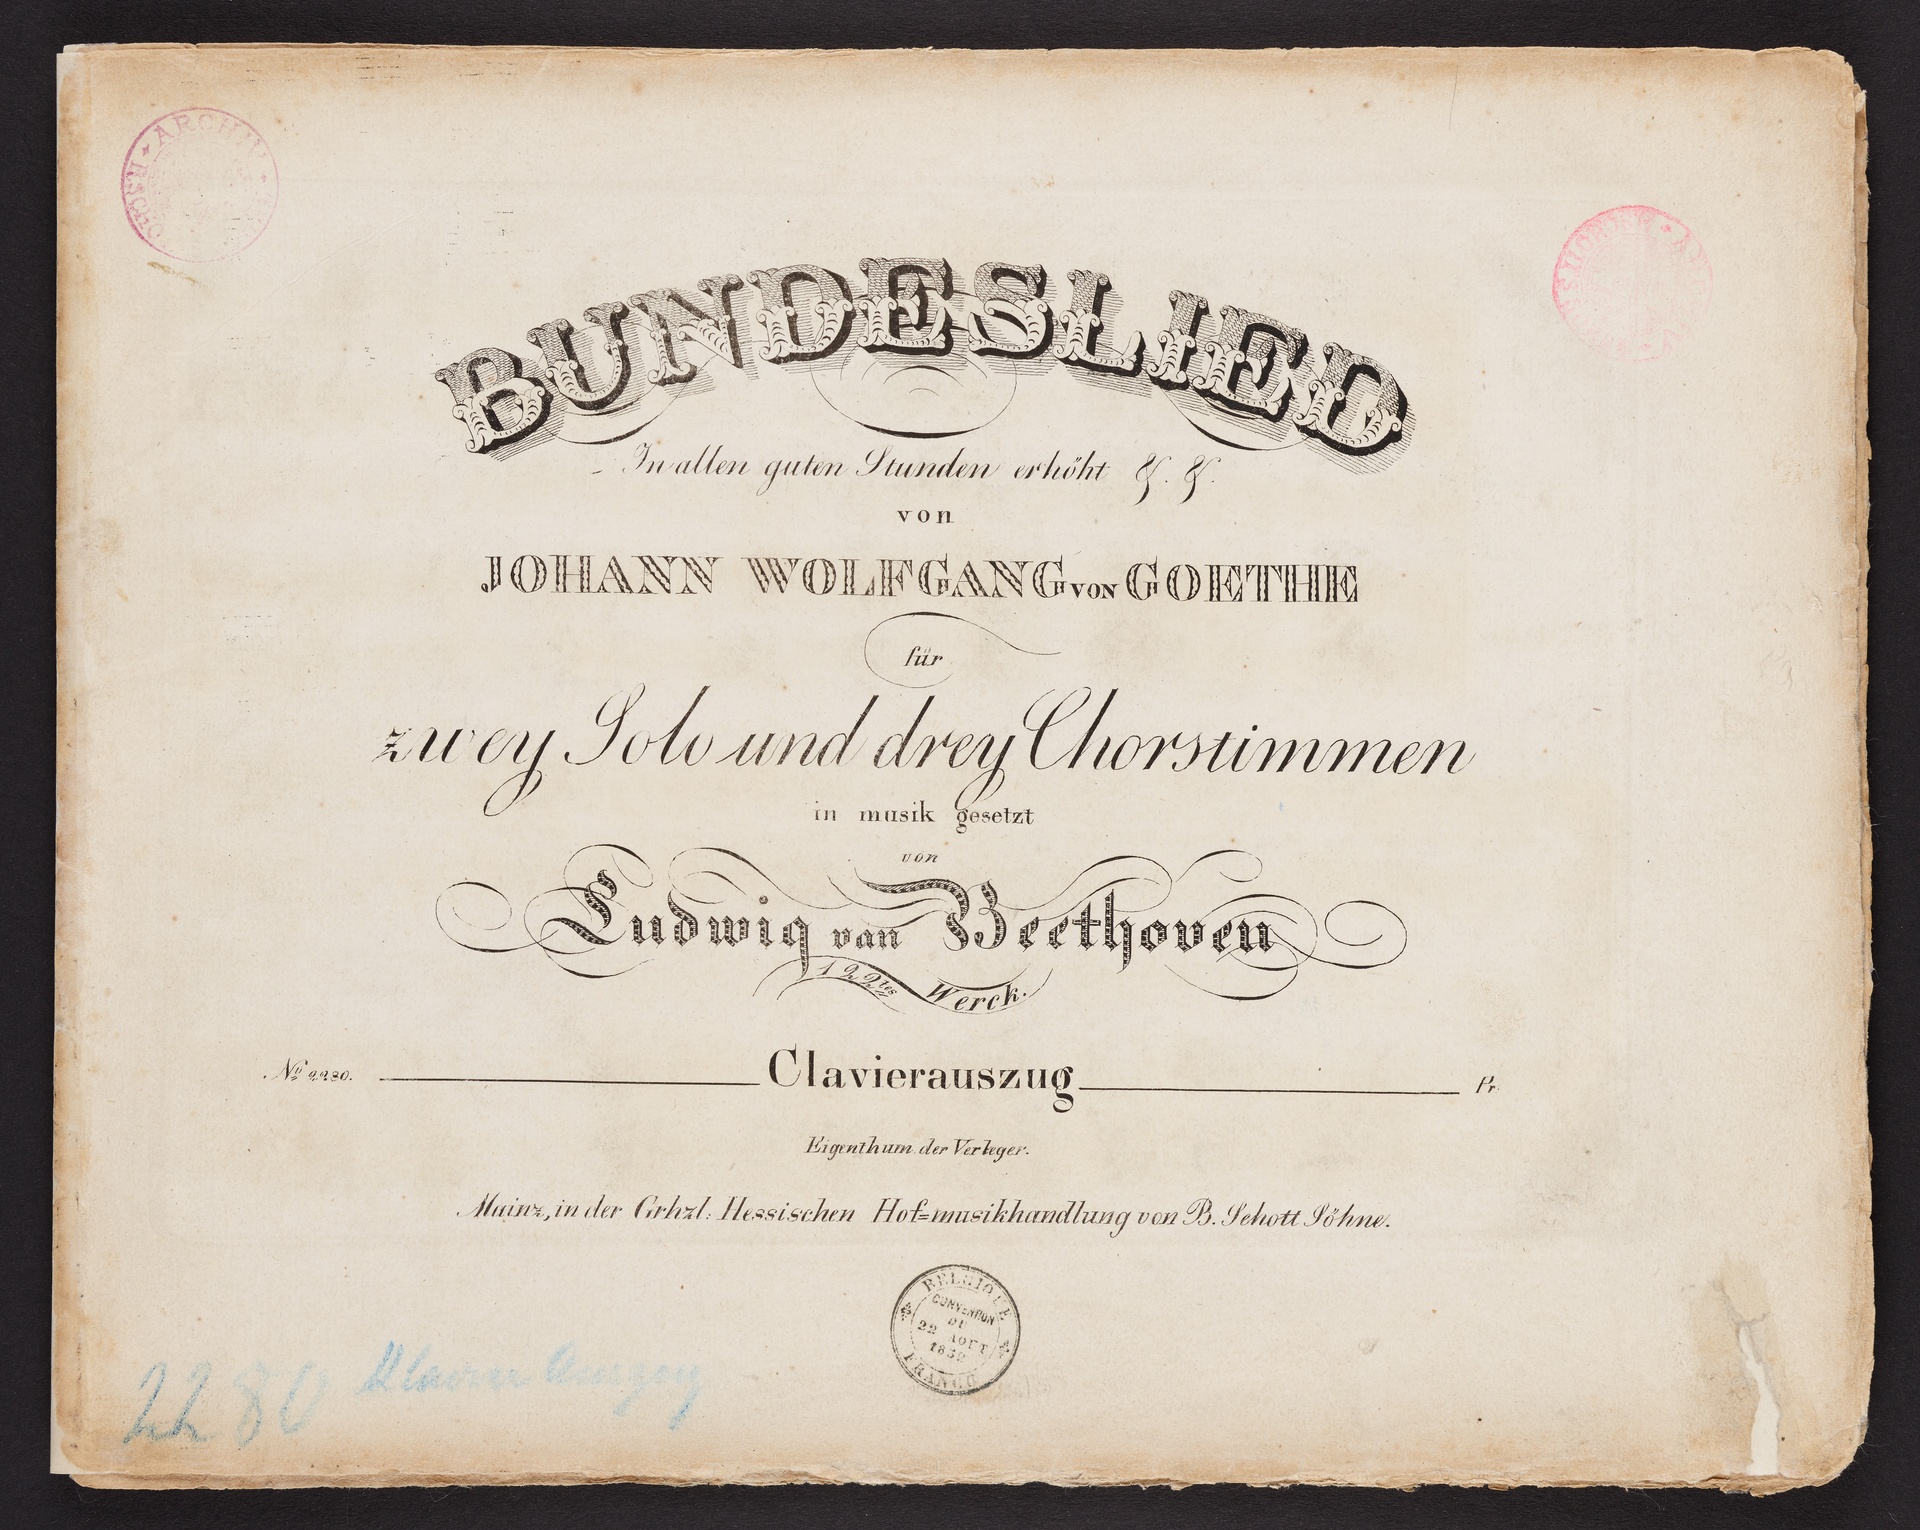 ARCHIV
BUNDESLIED
In allen guten Stunden erhöht &. &.
von
JOHANN WOLFGANG VON GOETHE
für
zwey Solo und drey Chorstimmen
in musik gesetzt
von
Ludwig van Beethoven
122tes Werck.
No 2280. Clavierauszug Pr.
Eigenthum der Verleger.
Mainz, in der Grhzl: Hessischen Hof=musikhandlung von B. Schott Söhne.
BELGIQUE
CONVENTION
DU
22 AOUT
1852
FRANCE
2280 Klavier Auszug